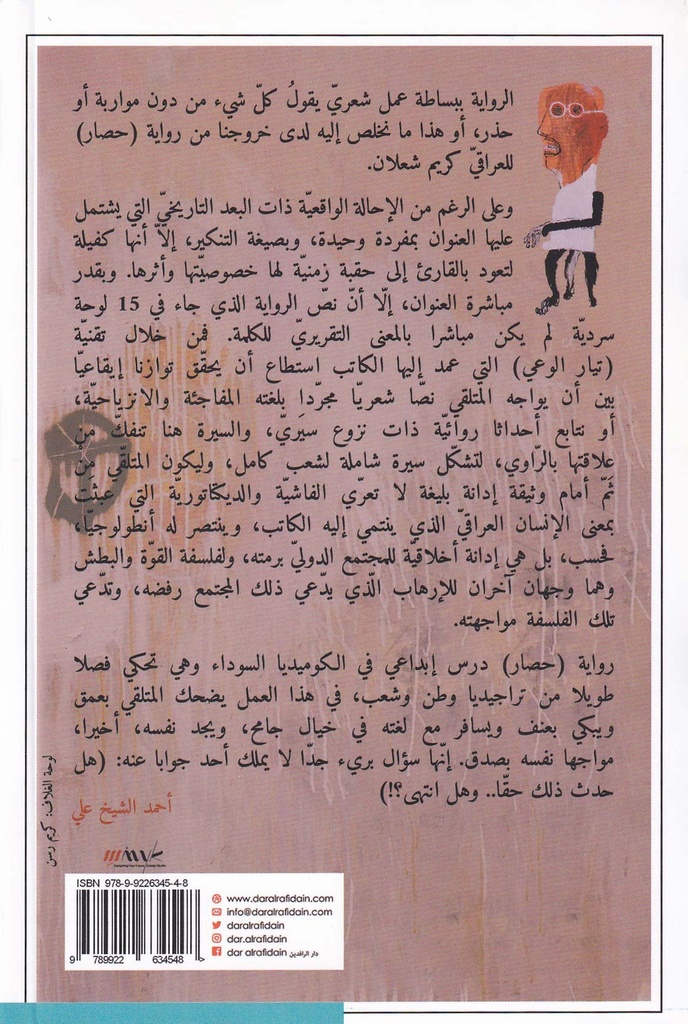 الرواية ببساطة عمل شعريّ يقولُ كلّ شيء من دون مواربة أو
حذر، أو هذا ما نخلص إليه لدى خروجنا من رواية (حصار)
للعراقيّ كريم شعلان.
وعلى الرغم من الإحالة الواقعيّة ذات البعد التاريخيّ التي يشتمل
عليها العنوان بمفردة وحيدة، وبصيغة التنكير، إلاّ أنها كفيلة
لتعود بالقارئ إلى حقبة زمنيّة لها خصوصيّتها وأثرها. وبقدر
مباشرة العنوان، إلّا أنّ نصّ الرواية الذي جاء في 15 لوحة
سرديّة لم يكن مباشرا بالمعنى التقريريّ للكلمة. فمن خلال تقنيّة
(تيار الوعي) التي عمد إليها الكاتب استطاع أن يحقّق توازنا إيقاعيّا
بين أن يواجه المتلقي نصّا شعريّا مجرّدا بلغته المفاجئة والانزياحيّة،
أو نتابع أحداثا روائيّة ذات نزوع سيَريّ، والسيرة هنا تنفكّ منْ
علاقتها بالرّاوي، لتشكّل سيرة شاملة لشعب كامل، وليكون المتلقّي منْ
ثَمّ أمام وثيقة إدانة بليغة لا تعرّي الفاشيّة والديكتاتوريّة التي عبثَتْ
بمعنى الإنسان العراقيّ الذي ينتمي إليه الكاتب، وينتصر له أنطولوجيّا،
فحسب، بل هي إدانة أخلاقيّة للمجتمع الدوليّ برمته، ولفلسفة القوّة والبطش
وهما وجهان آخران للإرهاب الّذي يدّعي ذلك المجتمع رفضه، وتدّعي
تلك الفلسفة مواجهته.
رواية (حصار) درس إبداعي في الكوميديا السوداء وهي تحكي فصلا
طويلا من تراجيديا وطن وشعب، في هذا العمل يضحك المتلقي بعمق
ويبكي بعنف ويسافر مع لغته في خيال جامح، ويجد نفسه، أخيرا،
مواجها نفسه بصدق. إنّها سؤال بريء جدّا لا يملك أحد جوابا عنه: (هل
حدث ذلك حقّا.. وهل انتهى؟!)
أحمد الشيخ علي
لوحة الغلاف: كريم رسن
ISBN 978-9-9226345-4-8
9 789922 634548 >
www.daralrafidain.com
info@daralrafidain.com
daralrafidain
dar.alrafidain
dar alrafidain دار الرافدين